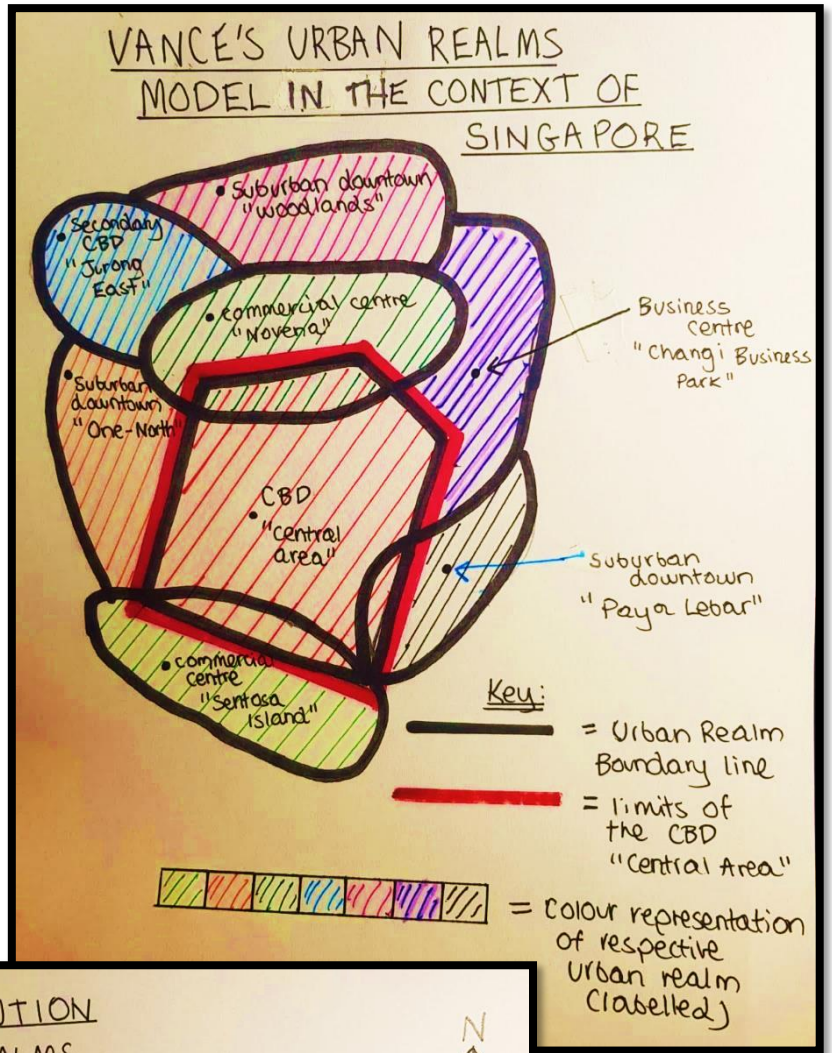 VANCE'S URBAN REALMS
MODEL IN THE CONTEXT OF
SINGAPORE
Suburban downtown
"Woodlands"
Secondary
CBD
"Jurong
East"
commercial centre
"Novena"
Business
centre
"Changi Business
Park"
Suburban
downtown
"One-North"
CBD
"Central
area"
Suburban
downtown
"Paya Lebar"
commercial
centre
"Sentosa
Island"
Key:
= Urban Realm
Boundary line
= limits of
the CBD
"Central Area"
= Colour representation
of respective
urban realm
(labelled)
UTION
N